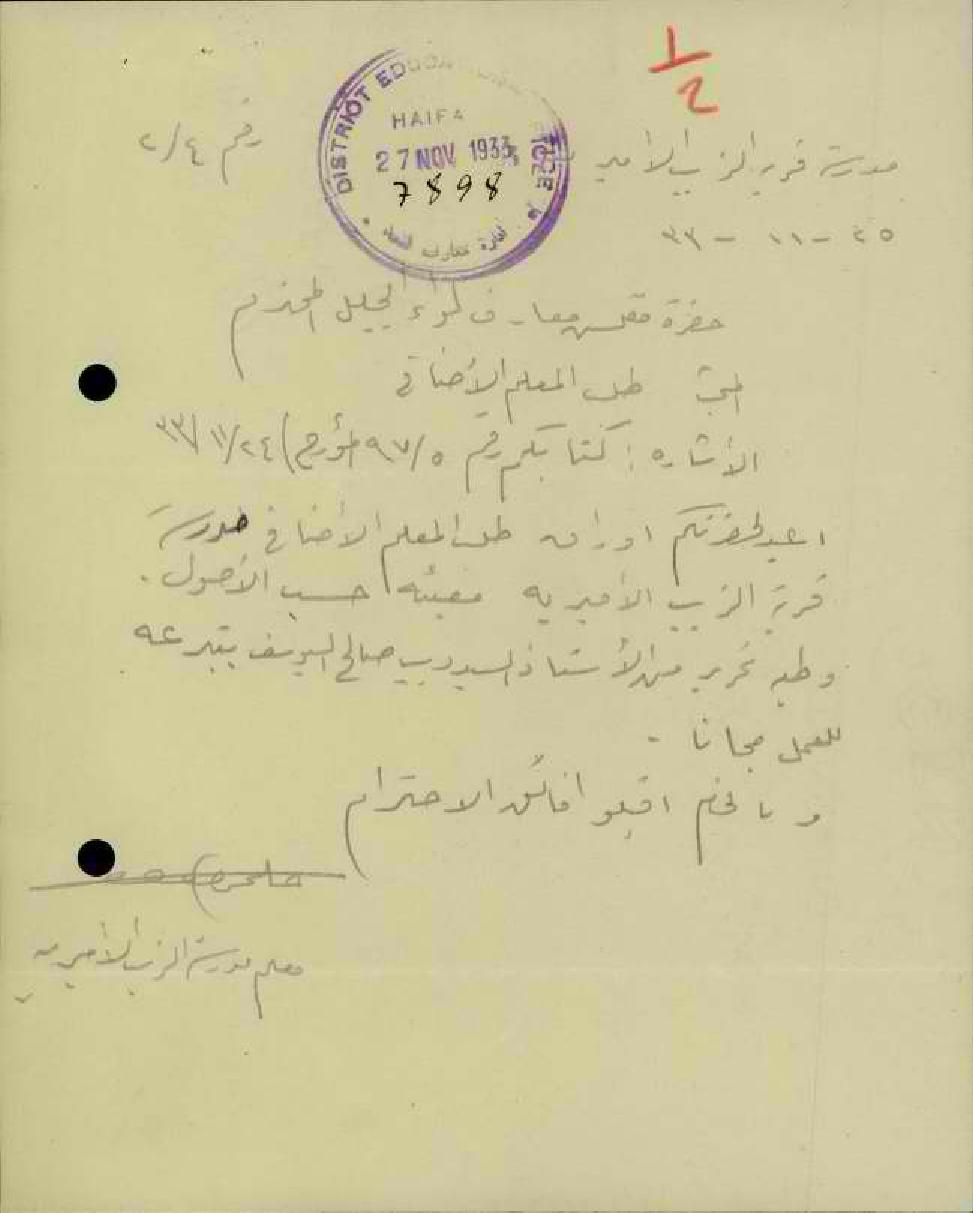 1/2
DISTRICT EDUCATION OFFICE
HAIFA
27 NOV 1933
7898
مدرسة قرية الزيب الاميرية
رقم ٢/٤
٢٥ - ١١ - ٣٣
حضرة مفتش معارف لواء الجليل المحترم
المبحث طلب المعلم الأضافي
الأشاره : كتابكم رقم ٩٧/٥ المؤرخ ٣٣/١١/٢٤
اعيد لحضرتكم اوراق طلب المعلم الأضافي مدرسة
قرية الزيب الأميريه معبئه حسب الأصول .
وطيه تحرير من الأستاذ السيد ديب صالح اليوسف بتبرعه
للعمل مجانا -
وبالختام اقبلوا فائق الاحترام
معلم مدرسة الزيب الأميريه